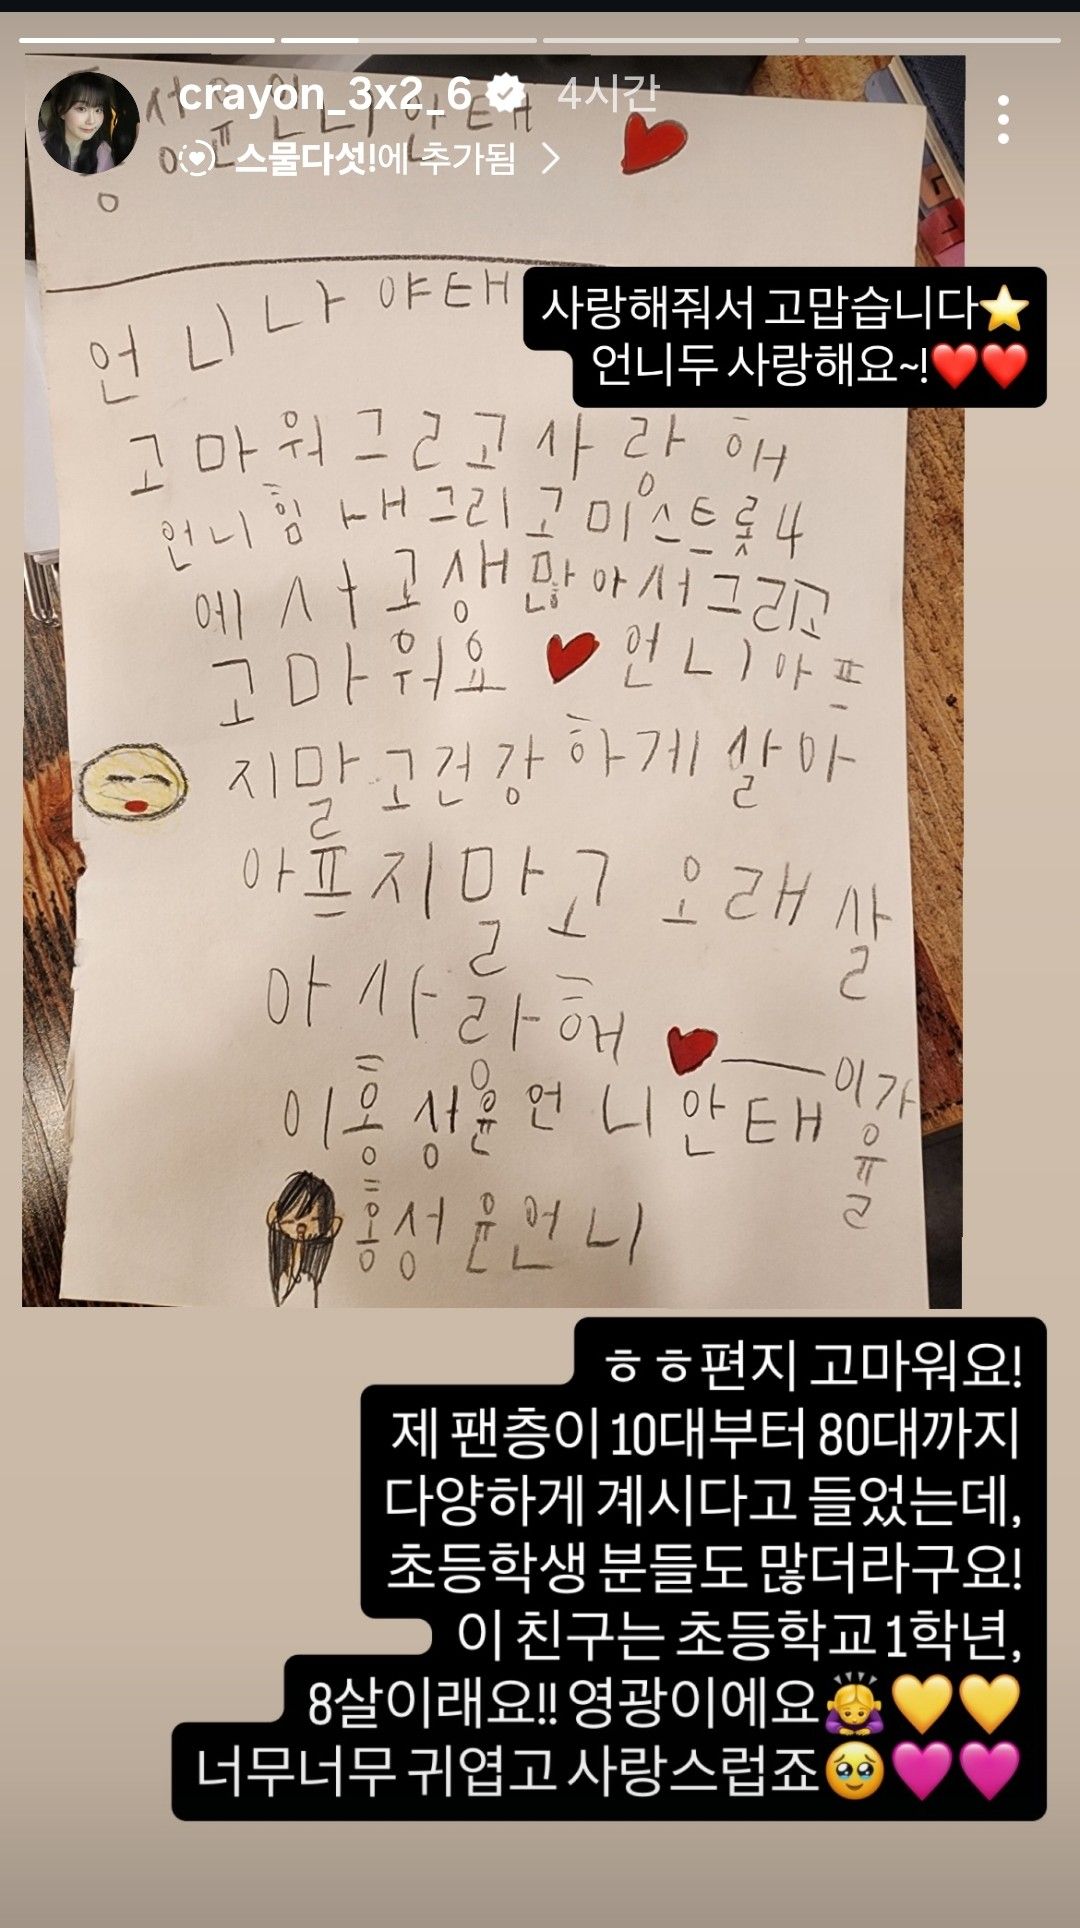 crayon_3x2_6 4시간
스물다섯!에 추가됨
언니나야태
사랑해줘서 고맙습니다⭐
언니두 사랑해요~!❤️❤️
고마워그리고사랑해
언니힘내그리고미스트롯4
에사고생많아서그리고
고마워요❤️언니아프
지말고건강하게살아
아프지말고 오래살
아사라해❤️
이홍성윤언니안태
홍성윤언니
ㅎㅎ편지 고마워요!
제 팬층이 10대부터 80대까지
다양하게 계시다고 들었는데,
초등학생 분들도 많더라구요!
이 친구는 초등학교 1학년,
8살이래요!! 영광이에요🙇‍♀️💛💛
너무너무 귀엽고 사랑스럽죠🥹🩷🩷